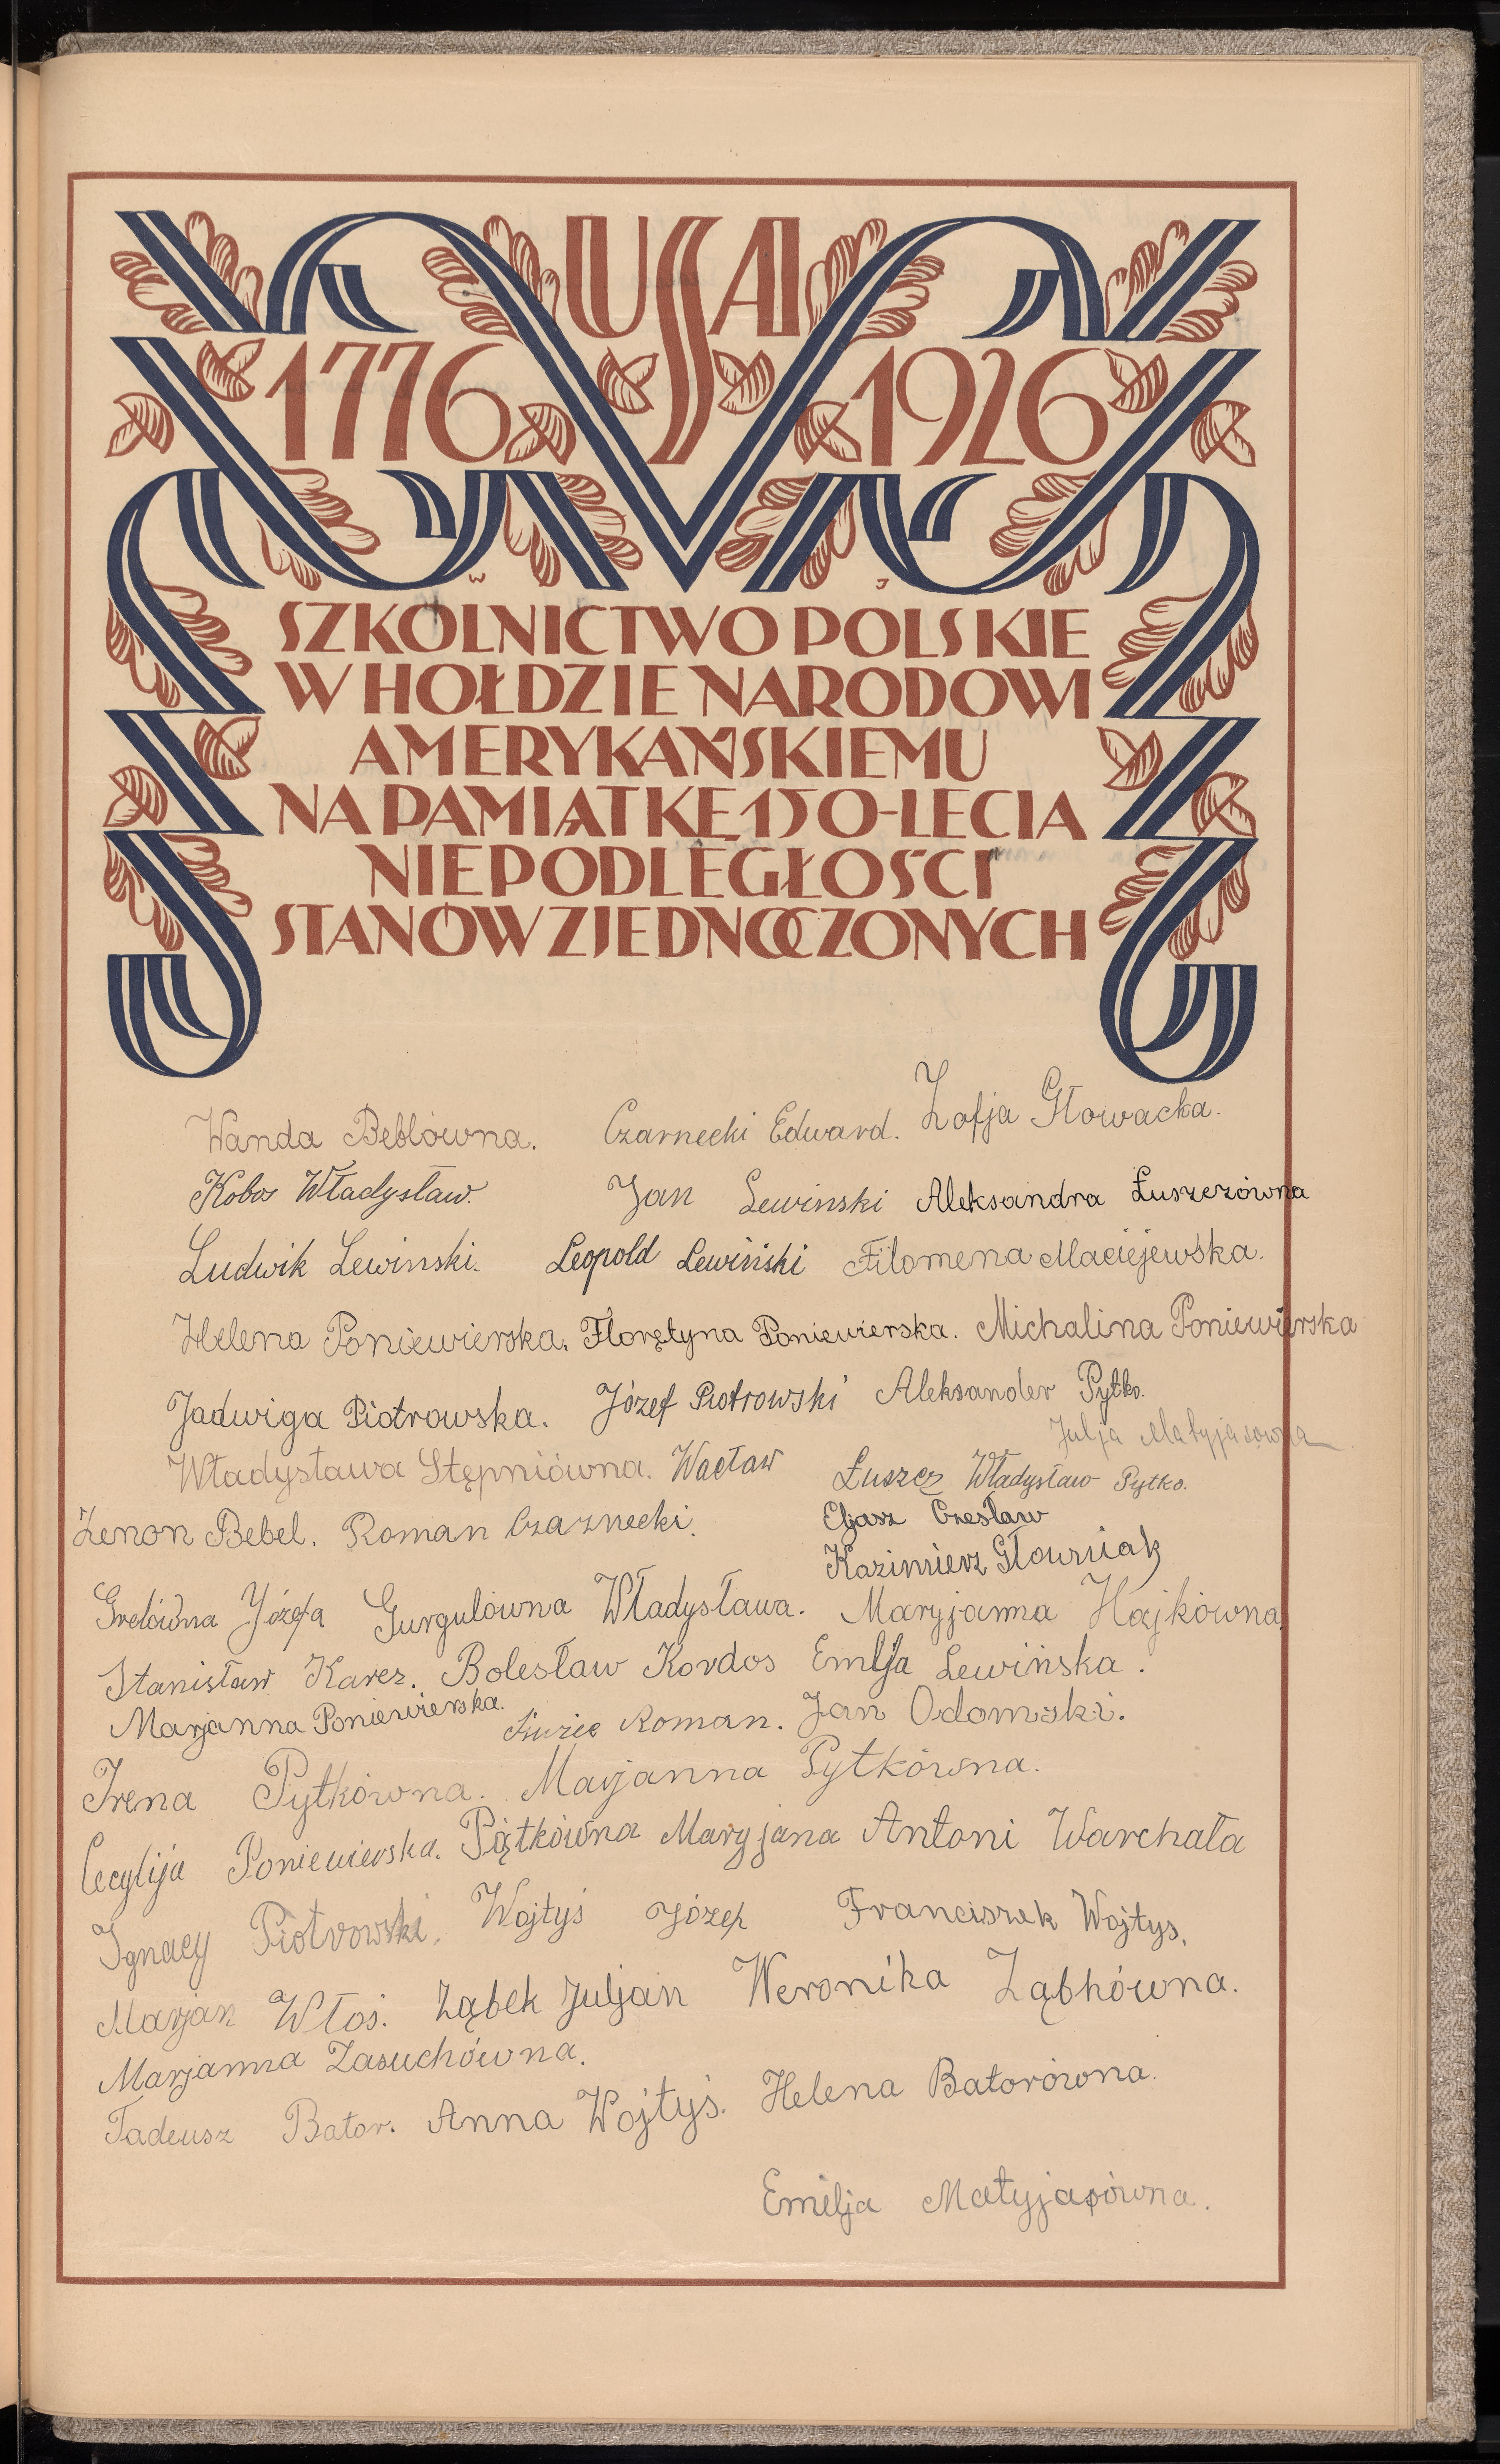 USA
1776 1926
W J
SZKOLNICTWO POLSKIE
W HOŁDZIE NARODOWI
AMERYKAŃSKIEMU
NA PAMIĄTKĘ 150-LECIA
NIEPODLEGŁOŚCI
STANÓW ZJEDNOCZONYCH
Wanda Beblówna. Czarnecki Edward. Zofja Głowacka.
Kobos Władysław. Jan Lewinski Aleksandra Łuszczówna
Ludwik Lewinski. Leopold Lewiński Filomena Maciejewska.
Helena Poniewierska. Florętyna Poniewierska. Michalina Poniewierska
Jadwiga Piotrowska. Józef Piotrowski Aleksander Pytko.
Julja Matyjasowna
Władysława Stępniówna. Wacław Łuszcz Władysław Pytko.
Zenon Bebel. Roman Czarnecki. Eljasz Czesław
Kazimierz Głowniak
Grelówna Józefa Gurgulówna Władysława. Maryjanna Hajkówna.
Stanisław Karcz. Bolesław Kordos Emlja Lewińska.
Marjanna Poniewierska. Roman. Jan Odomski.
Irena Pytkówna. Marjanna Pytkówna.
Cecylija Poniewierska. Piątkówna Maryjana Antoni Warchała
Ignacy Piotrowski. Wojtyś Józef Franciszek Wojtys.
Marjan Włoś. Ząbek Juljan Weronika Ząbkówna.
Marjanna Zasuchówna.
Tadeusz Bator. Anna Wojtyś. Helena Batorówna.
Emilja Matyjasówna.